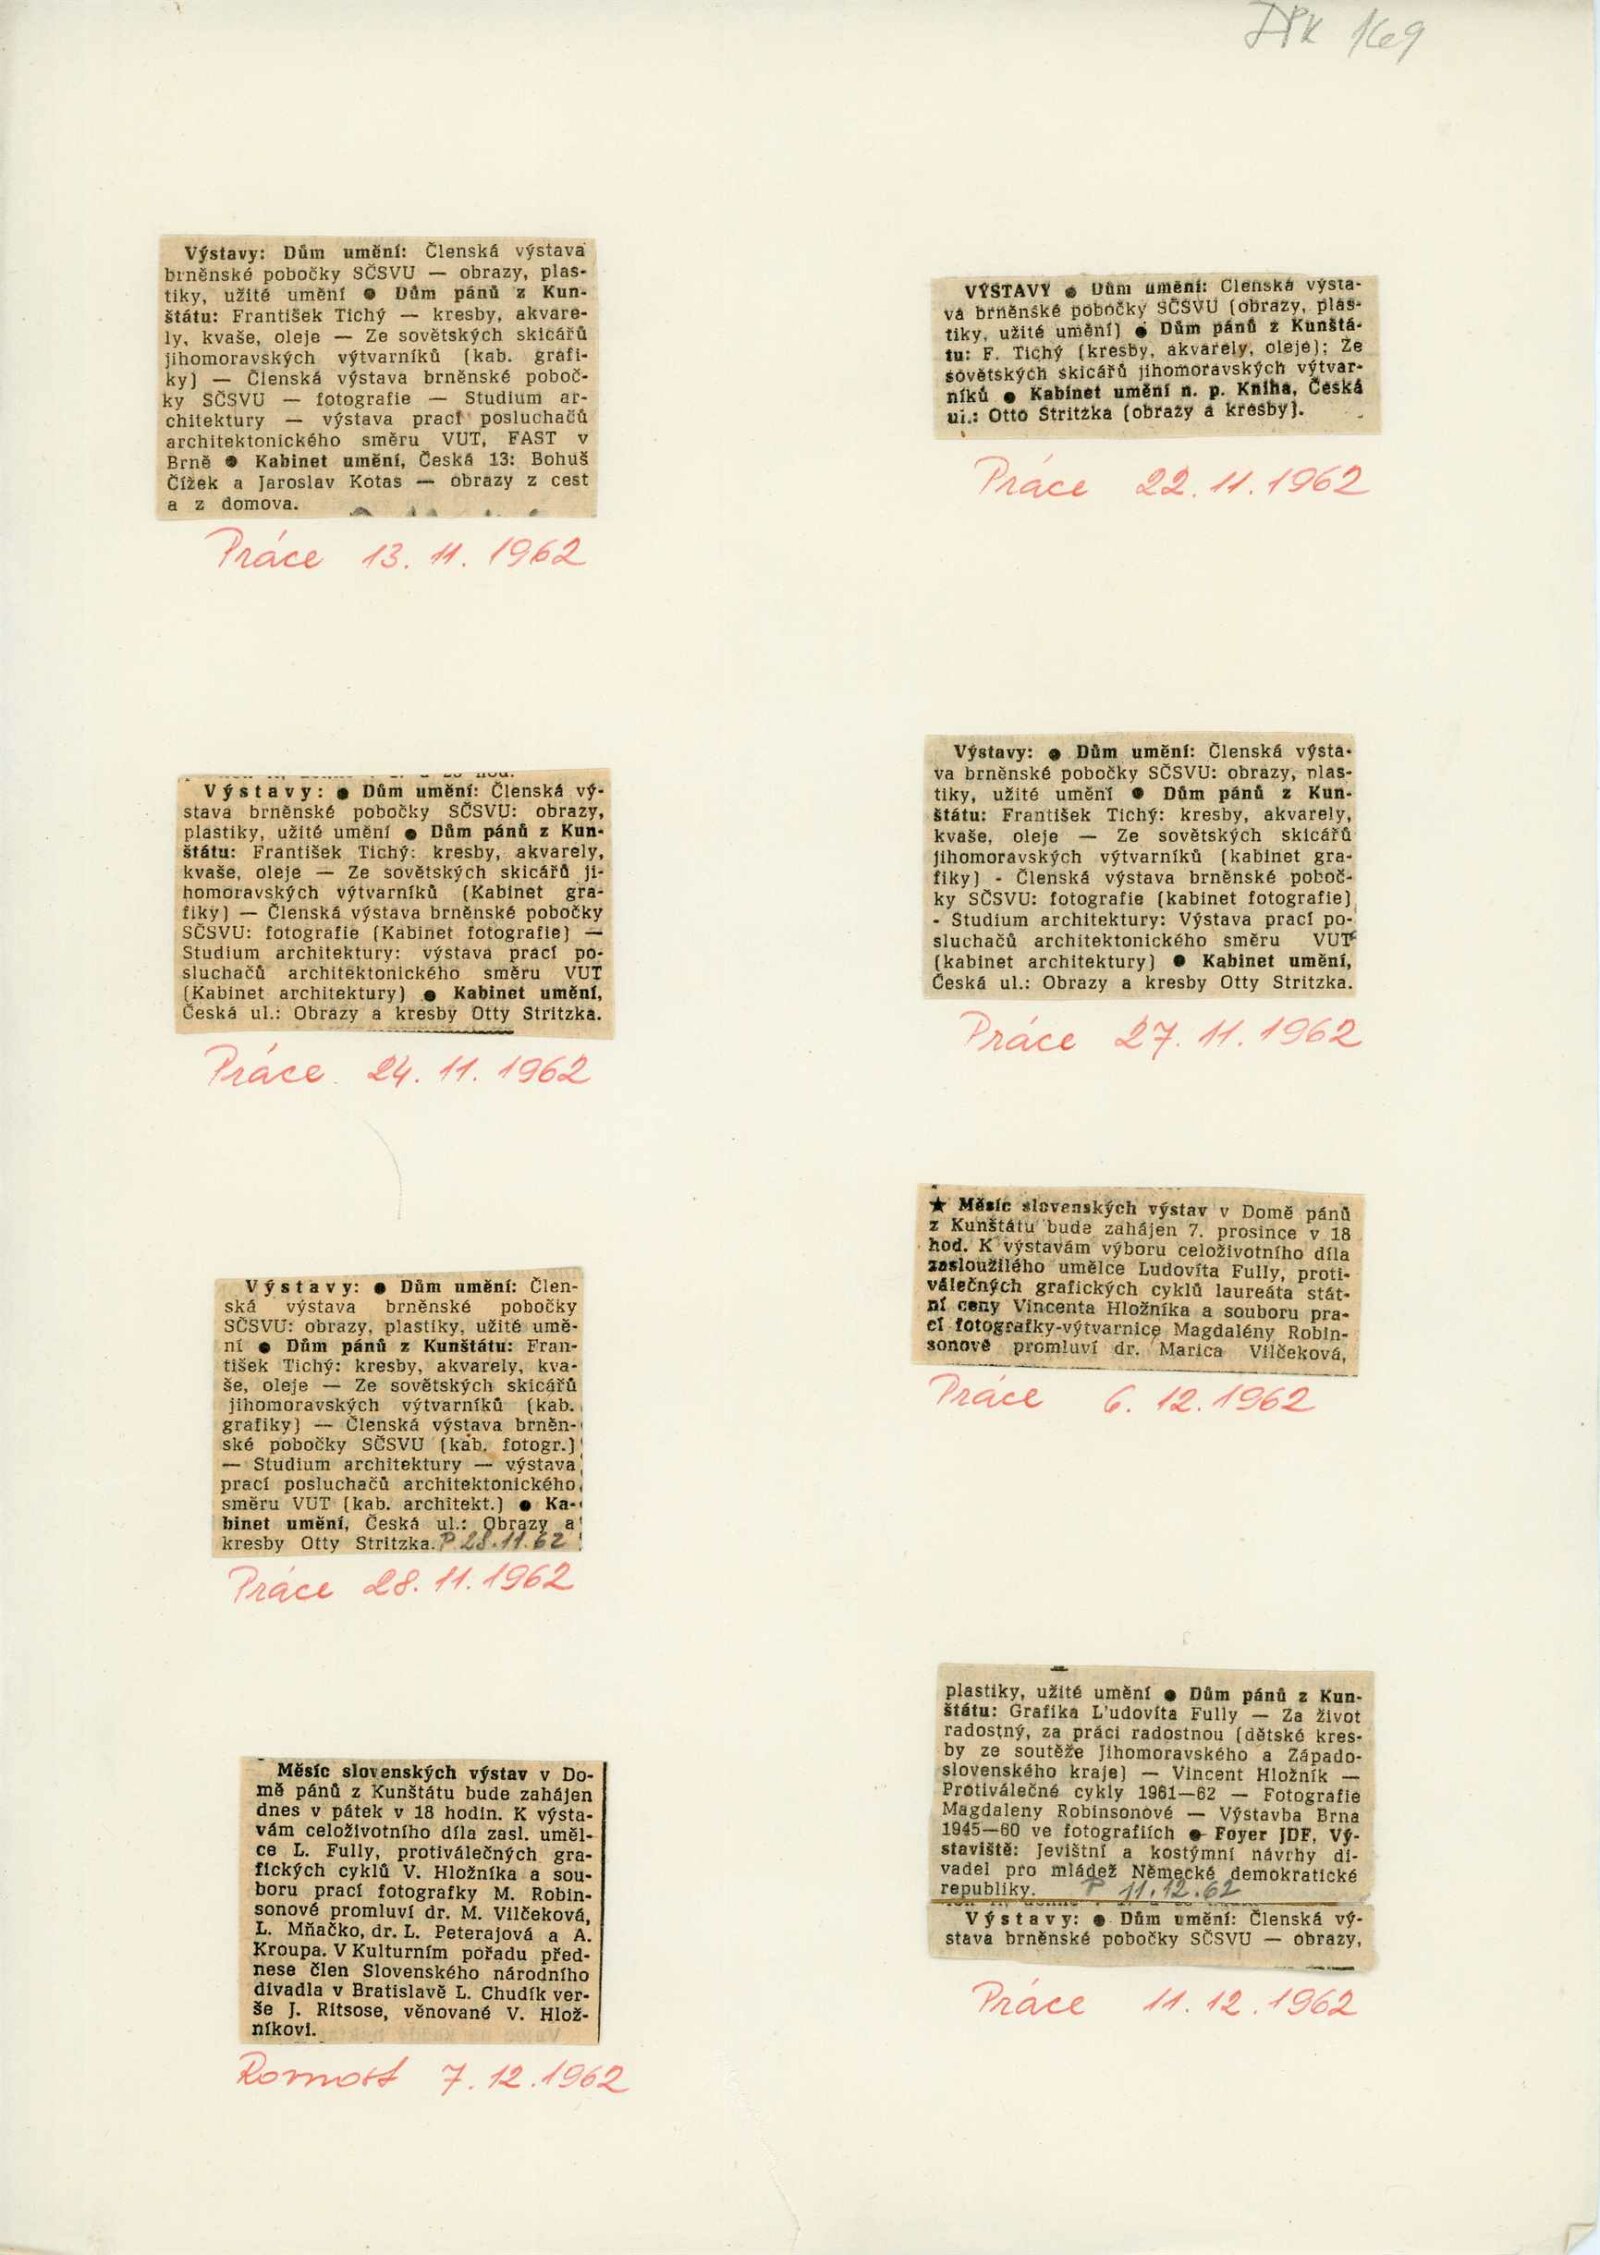 DPK 169
Výstavy: Dům umění: Členská výstava
brněnské pobočky SČSVU — obrazy, plas-
tiky, užité umění ● Dům pánů z Kun-
štátu: František Tichý — kresby, akvare-
ly, kvaše, oleje — Ze sovětských skicářů
jihomoravských výtvarníků (kab. grafi-
ky) — Členská výstava brněnské poboč-
ky SČSVU — fotografie — Studium ar-
chitektury — výstava prací posluchačů
architektonického směru VUT, FAST v
Brně ● Kabinet umění, Česká 13: Bohuš
Čížek a Jaroslav Kotas — obrazy z cest
a z domova.
Práce 13. 11. 1962
VÝSTAVY ● Dům umění: Členská výsta-
va brněnské pobočky SČSVU (obrazy, plas-
tiky, užité umění) ● Dům pánů z Kunštá-
tu: F. Tichý (kresby, akvarely, oleje); Ze
sovětských skicářů jihomoravských výtvar-
níků ● Kabinet umění n. p. Kniha, Česká
ul.: Otto Stritzka (obrazy a kresby).
Práce 22. 11. 1962
Výstavy: ● Dům umění: Členská vý-
stava brněnské pobočky SČSVU: obrazy,
plastiky, užité umění ● Dům pánů z Kun-
štátu: František Tichý: kresby, akvarely,
kvaše, oleje — Ze sovětských skicářů ji-
homoravských výtvarníků (Kabinet gra-
fiky) — Členská výstava brněnské pobočky
SČSVU: fotografie (Kabinet fotografie) —
Studium architektury: výstava prací po-
sluchačů architektonického směru VUT
(Kabinet architektury) ● Kabinet umění,
Česká ul.: Obrazy a kresby Otty Stritzka.
Práce 24. 11. 1962
Výstavy: ● Dům umění: Členská výsta-
va brněnské pobočky SČSVU: obrazy, plas-
tiky, užité umění ● Dům pánů z Kun-
štátu: František Tichý: kresby, akvarely,
kvaše, oleje — Ze sovětských skicářů
jihomoravských výtvarníků (kabinet gra-
fiky) - Členská výstava brněnské poboč-
ky SČSVU: fotografie (kabinet fotografie)
- Studium architektury: Výstava prací po-
sluchačů architektonického směru VUT
(kabinet architektury) ● Kabinet umění,
Česká ul.: Obrazy a kresby Otty Stritzka.
Práce 27. 11. 1962
Výstavy: ● Dům umění: Člen-
ská výstava brněnské pobočky
SČSVU: obrazy, plastiky, užité umě-
ní ● Dům pánů z Kunštátu: Fran-
tišek Tichý: kresby, akvarely, kva-
še, oleje — Ze sovětských skicářů
jihomoravských výtvarníků (kab.
grafiky) — Členská výstava brněn-
ské pobočky SČSVU (kab. fotogr.)
— Studium architektury — výstava
prací posluchačů architektonického
směru VUT (kab. architekt.) ● Ka-
binet umění, Česká ul.: Obrazy a
kresby Otty Stritzka. P 28.11.62
Práce 28. 11. 1962
★ Měsíc slovenských výstav v Domě pánů
z Kunštátu bude zahájen 7. prosince v 18
hod. K výstavám výboru celoživotního díla
zasloužilého umělce Ludovíta Fully, proti-
válečných grafických cyklů laureáta stát-
ní ceny Vincenta Hložníka a souboru pra-
cí fotografky-výtvarnice Magdalény Robin-
sonové promluví dr. Marica Vilčeková,
Práce 6. 12. 1962
Měsíc slovenských výstav v Do-
mě pánů z Kunštátu bude zahájen
dnes v pátek v 18 hodin. K výsta-
vám celoživotního díla zasl. uměl-
ce L. Fully, protiválečných gra-
fických cyklů V. Hložníka a sou-
boru prací fotografky M. Robin-
sonové promluví dr. M. Vilčeková,
L. Mňačko, dr. L. Peterajová a A.
Kroupa. V Kulturním pořadu před-
nese člen Slovenského národního
divadla v Bratislavě L. Chudík ver-
še J. Ritsose, věnované V. Hlož-
níkovi.
Rovnost 7. 12. 1962
plastiky, užité umění ● Dům pánů z Kun-
štátu: Grafika L'udovíta Fully — Za život
radostný, za práci radostnou (dětské kres-
by ze soutěže Jihomoravského a Západo-
slovenského kraje) — Vincent Hložník —
Protiválečné cykly 1961—62 — Fotografie
Magdaleny Robinsonové — Výstavba Brna
1945—60 ve fotografiích ● Foyer JDF, Vý-
staviště: Jevištní a kostýmní návrhy di-
vadel pro mládež Německé demokratické
republiky. P 11.12.62
Výstavy: ● Dům umění: Členská vý-
stava brněnské pobočky SČSVU — obrazy,
Práce 11. 12. 1962